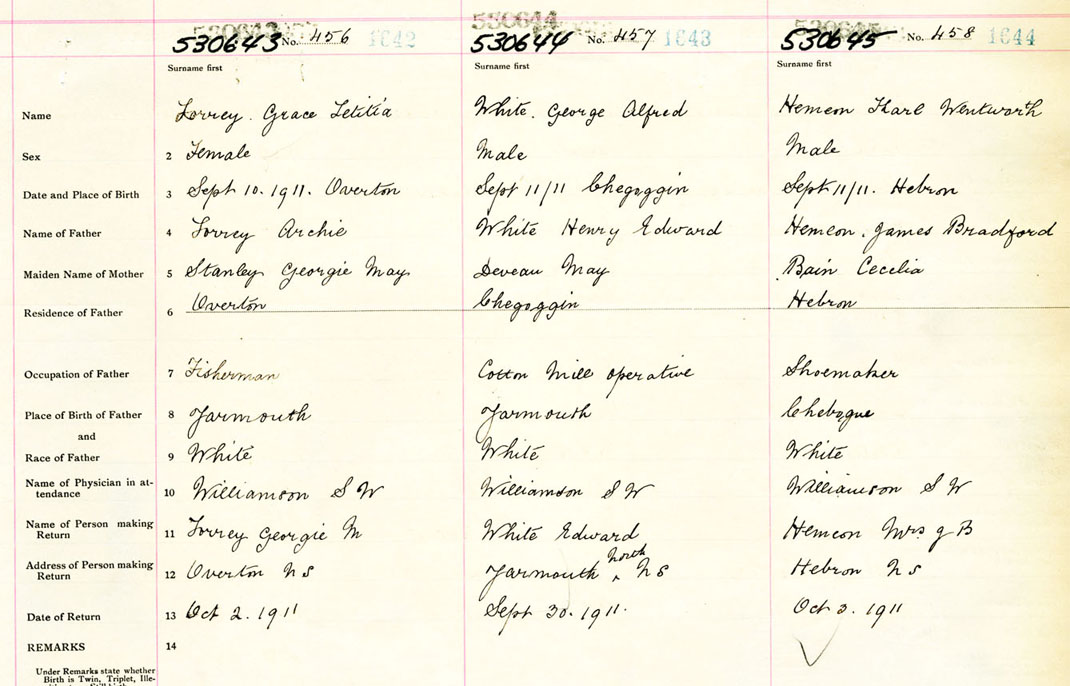 530643 No. 456 1642 530644 530644 No. 457 1643 530645 No. 458 1644
Surname first Surname first Surname first
Name Torrey. Grace Letitia White. George Alfred Hemeon Karl Wentworth
Sex 2 Female Male Male
Date and Place of Birth 3 Sept 10. 1911. Overton Sept 11/11 Chegoggin Sept 11/11. Hebron
Name of Father 4 Torrey Archie White Henry Edward Hemeon. James Bradford
Maiden Name of Mother 5 Stanley Georgie May Deveau May Bain Cecelia
Residence of Father 6 Overton Chegoggin Hebron
Occupation of Father 7 Fisherman Cotton Mill operative Shoemaker
Place of Birth of Father 8 Yarmouth Yarmouth Chebogue
and
Race of Father 9 White White White
Name of Physician in at-
tendance 10 Williamson S W Williamson S W Williamson S W
Name of Person making
Return 11 Torrey Georgie M White Edward Hemeon Mrs J B
Address of Person making
Return 12 Overton N S Yarmouth North N S Hebron N S
Date of Return 13 Oct 2. 1911 Sept 30. 1911. Oct 3. 1911
REMARKS 14
Under Remarks state whether
Birth is Twin, Triplet, Ille-